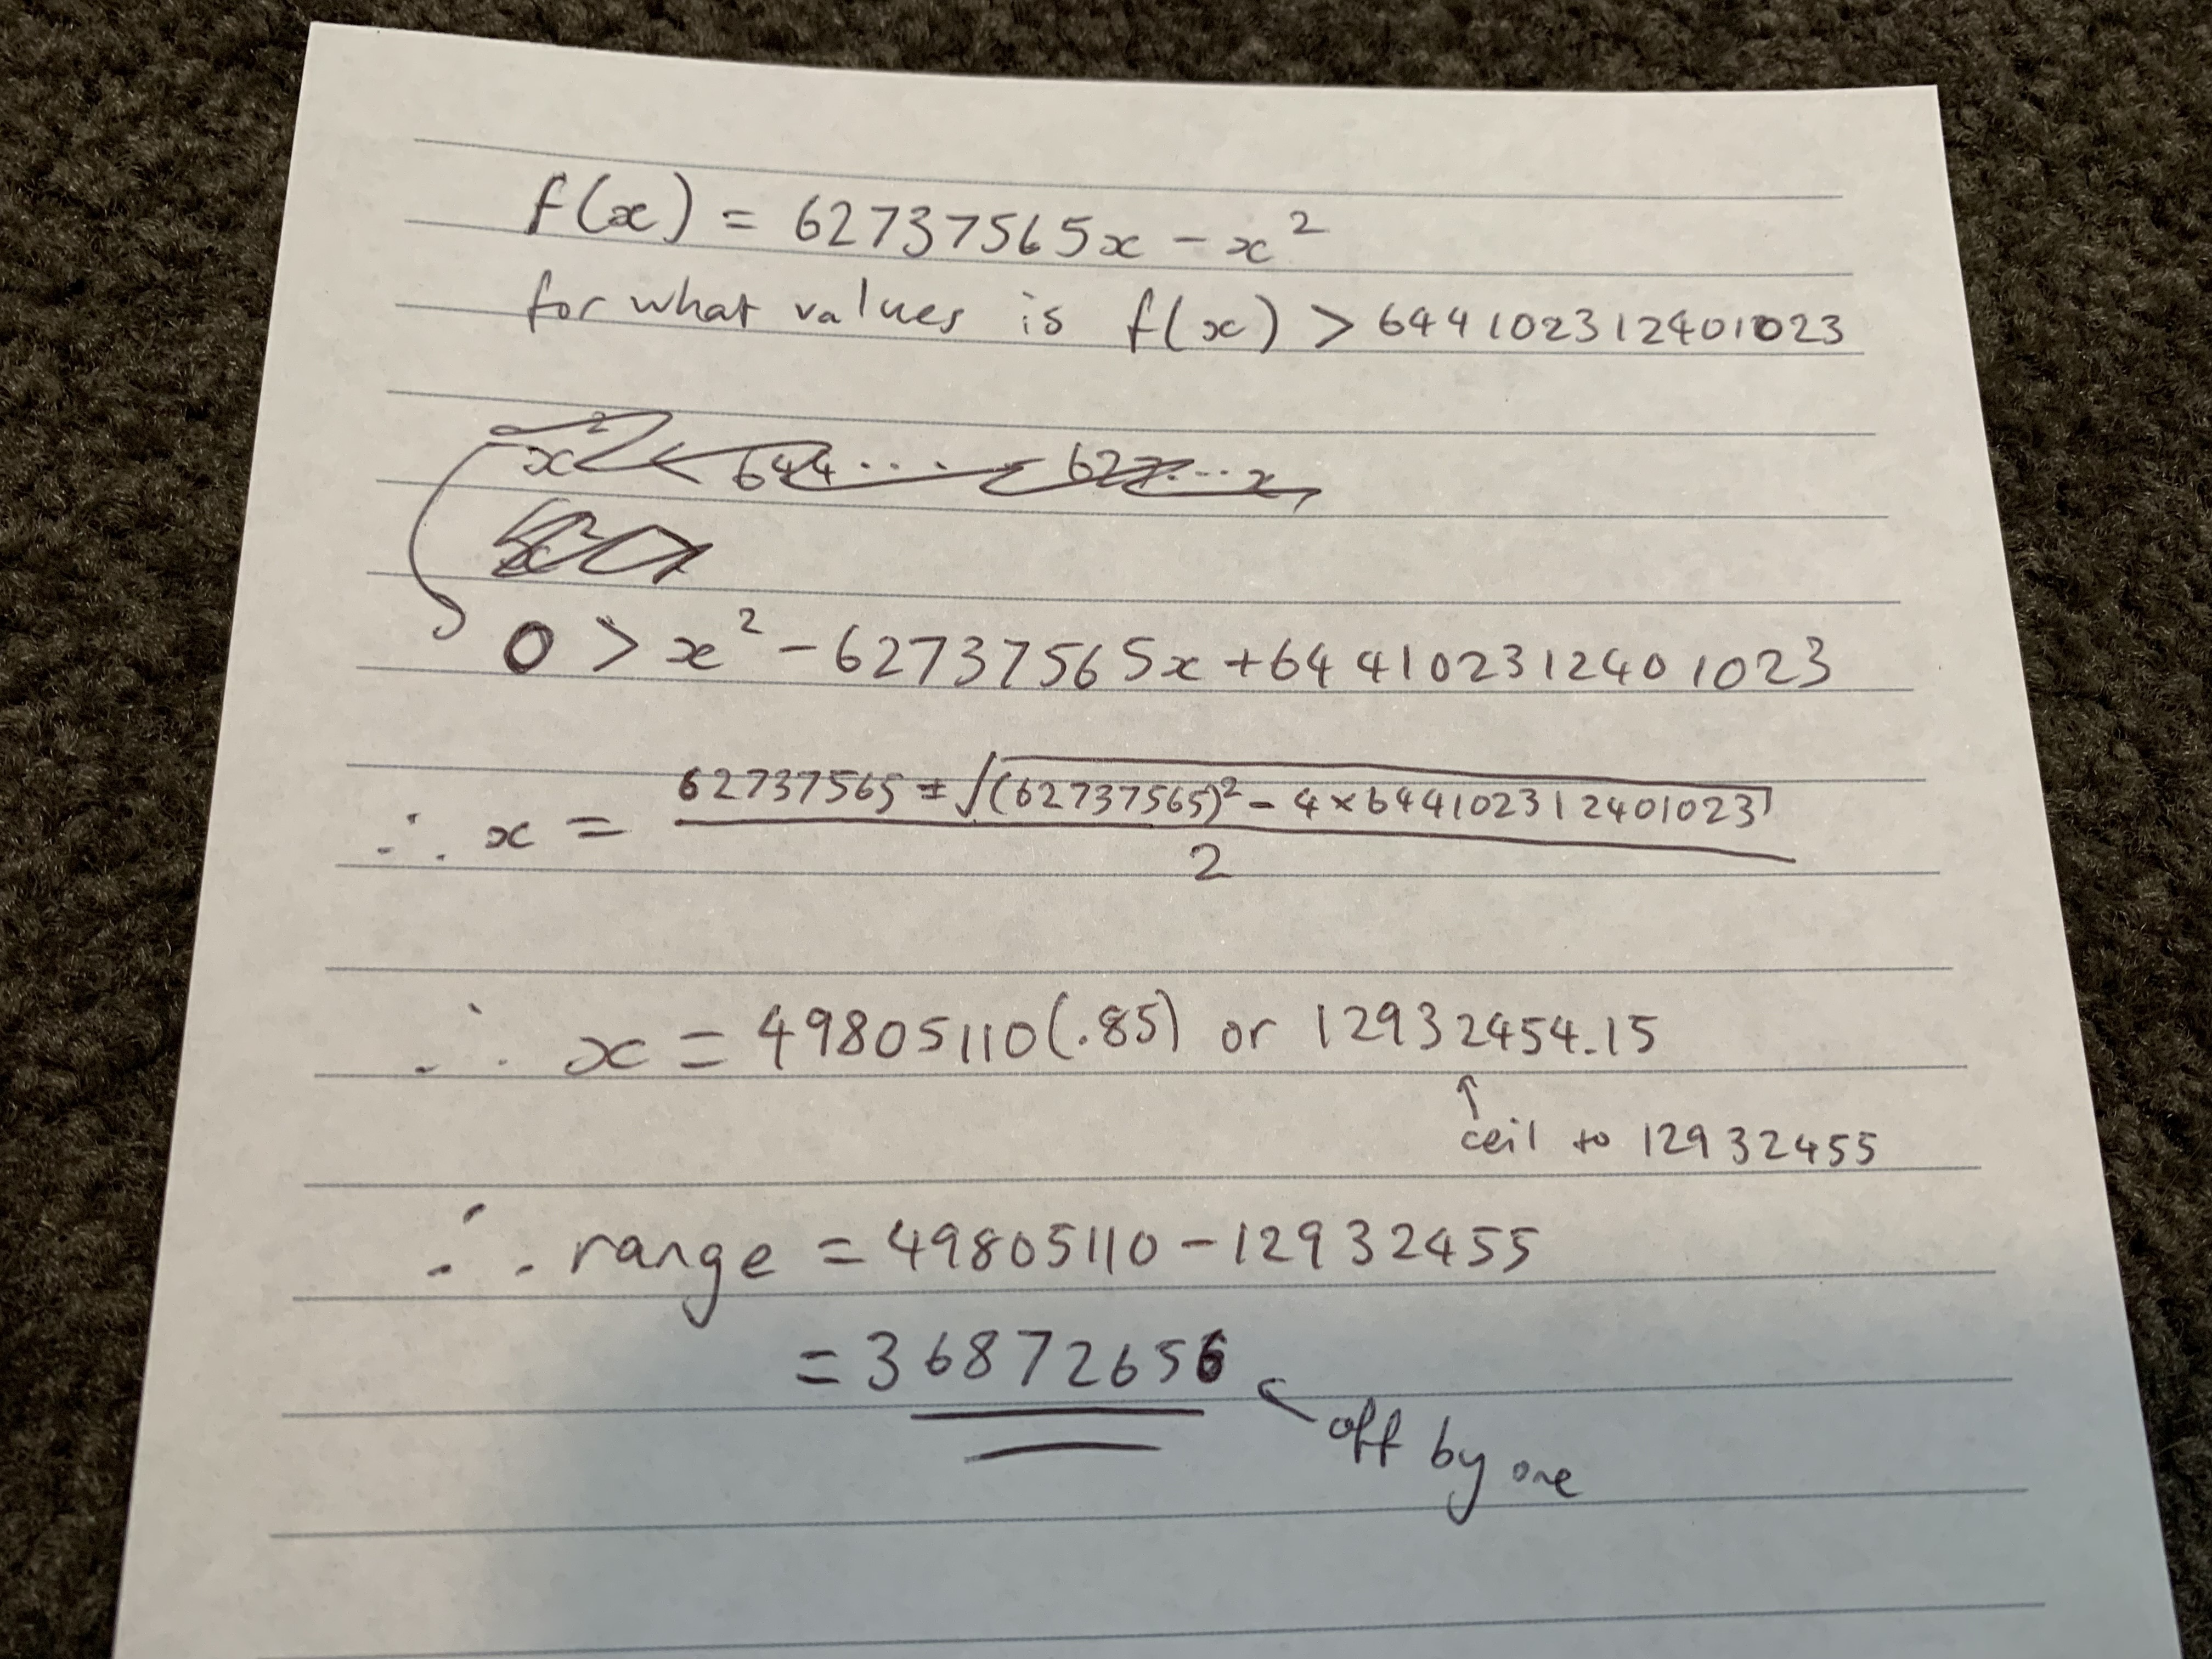 f(x) = 62737565x - x²
for what values is f(x) > 644102312401023
x² < 644... 627...x
0 > x² - 62737565x + 644102312401023
∴ x = (62737565 ± √((62737565)² - 4 × 644102312401023)) / 2
∴ x = 49805110(.85) or 12932454.15
↑
ceil to 12932455
∴ range = 49805110 - 12932455
= 36872656
off by one